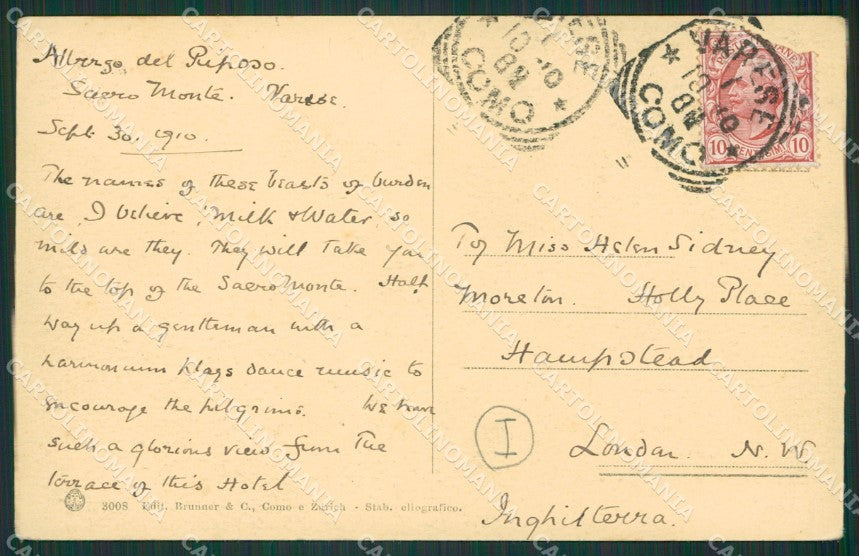 Albergo del Riposo.
Sacro Monte. Varese.
Sept. 30. 1910.
The names of these beasts of burden
are I believe, Milk & Water, so
mild are they. They will take you
to the top of the Sacro Monte. Half
way up a gentleman with a
harmonium plays dance music to
encourage the pilgrims. We have
such a glorious view from the
terrace of this Hotel
3008 Edit. Brunner & C., Como e Zürich - Stab. eliografico.
VARESE
COMO
10
10
To Miss Helen Sidney
Moreton. Holly Place
Hampstead
I
London. N. W.
Inghilterra.
CARTOLINOMANIA